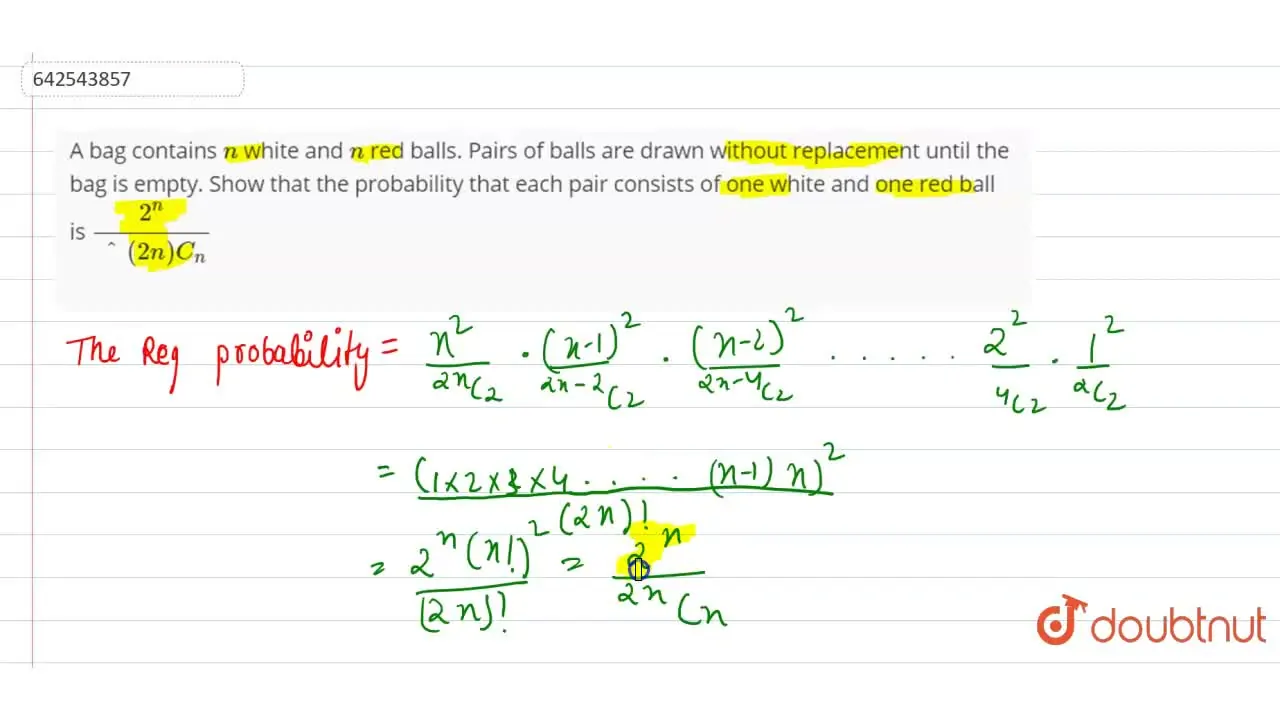 642543857
A bag contains n white and n red balls. Pairs of balls are drawn without replacement until the
bag is empty. Show that the probability that each pair consists of one white and one red ball
is 2^n / ^ (2n)C_n
The Req probability = n² / 2nC2 · (n-1)² / 2n-2C2 · (n-2)² / 2n-4C2 . . . . . . 2² / 4C2 · 1² / 2C2
= (1×2×3×4 . . . . (n-1) n)² / (2n)!
= 2^n (n!)² / (2n)! = 2^n / 2nCn
doubtnut